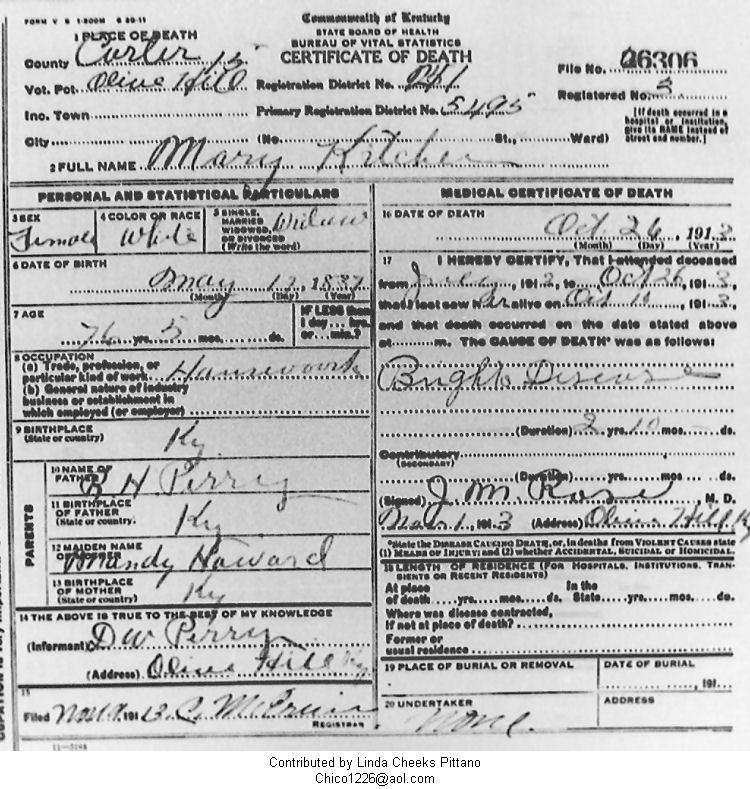 FORM V S 1-200M 6 20-11
Commonwealth of Kentucky
STATE BOARD OF HEALTH
BUREAU OF VITAL STATISTICS
CERTIFICATE OF DEATH
1 PLACE OF DEATH
County Carter 15
Vot. Pct. Olive Hill
Registration District No. 241
File No. 26306
Inc. Town
Primary Registration District No. 5495
Registered No. 3
City (No. St., Ward)
[If death occurred in a hospital or institution, give its NAME instead of street and number.]
2 FULL NAME Mary Kitchen
PERSONAL AND STATISTICAL PARTICULARS
3 SEX
Female
4 COLOR OR RACE
White
5 SINGLE, MARRIED WIDOWED, OR DIVORCED (Write the word)
Widow
6 DATE OF BIRTH
May 12, 1837
(Month) (Day) (Year)
7 AGE
76 yrs. 5 mos. ds.
IF LESS than 1 day... hrs. or... min.?
8 OCCUPATION
(a) Trade, profession, or
particular kind of work Housework
(b) General nature of industry
business or establishment in
which employed (or employer)
9 BIRTHPLACE
(State or country) Ky
PARENTS
10 NAME OF FATHER
R H Perry
11 BIRTHPLACE OF FATHER
(State or country) Ky
12 MAIDEN NAME OF MOTHER
Mandy Howard
13 BIRTHPLACE OF MOTHER
(State or country) Ky
14 THE ABOVE IS TRUE TO THE BEST OF MY KNOWLEDGE
(Informant) D W Perry
(Address) Olive Hill Ky
15
Filed 191
REGISTRAR
11-3184
MEDICAL CERTIFICATE OF DEATH
16 DATE OF DEATH
Oct 26, 1913
(Month) (Day) (Year)
17 I HEREBY CERTIFY, That I attended deceased
from July, 1912, to Oct 26, 1913,
that I last saw her alive on Oct 10, 1913,
and that death occurred on the date stated above
at m. The CAUSE OF DEATH* was as follows:
Brights Disease
(Duration) 2 yrs. 10 mos. ds.
Contributory
(SECONDARY)
(Duration) yrs. mos. ds.
(Signed) J M Rose, M. D.
1, 1913 (Address) Olive Hill Ky
*State the DISEASE CAUSING DEATH, or, in deaths from VIOLENT CAUSES state
(1) MEANS OF INJURY; and (2) whether ACCIDENTAL, SUICIDAL OR HOMICIDAL.
18 LENGTH OF RESIDENCE (FOR HOSPITALS, INSTITUTIONS, TRANSIENTS OR RECENT RESIDENTS)
At place of death yrs. mos. ds. In the State yrs. mos. ds.
Where was disease contracted,
If not at place of death?
Former or
usual residence
19 PLACE OF BURIAL OR REMOVAL
DATE OF BURIAL
, 191
20 UNDERTAKER
None
ADDRESS
Contributed by Linda Cheeks Pittano
Chico1226@aol.com